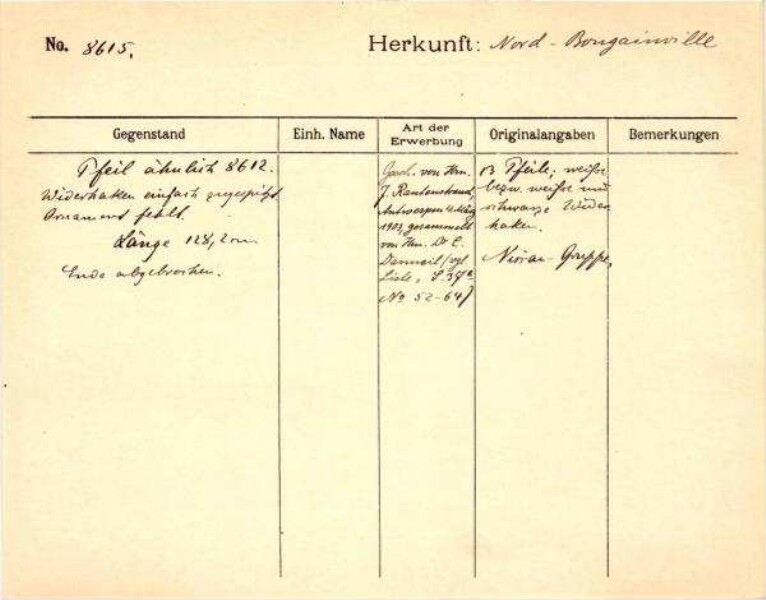 No. 8615. Herkunft: Nord-Bougainville
Gegenstand
Einh. Name
Art der
Erwerbung
Originalangaben
Bemerkungen
Pfeil ähnlich 8612.
Widerhaken einfach zugespitzt
Ornament fehlt.
Länge 128,2 cm.
Ende abgebrochen.
Gesch. von Hrn.
J.
Antwerpen 4. März
1903, gesammelt
von Hrn. Dr. E.
(vgl
Liste, S. 37
No 52-64)
13 Pfeile; weiße
bezw. weiße und
schwarze Wider
haken.
Nissan-Gruppe,